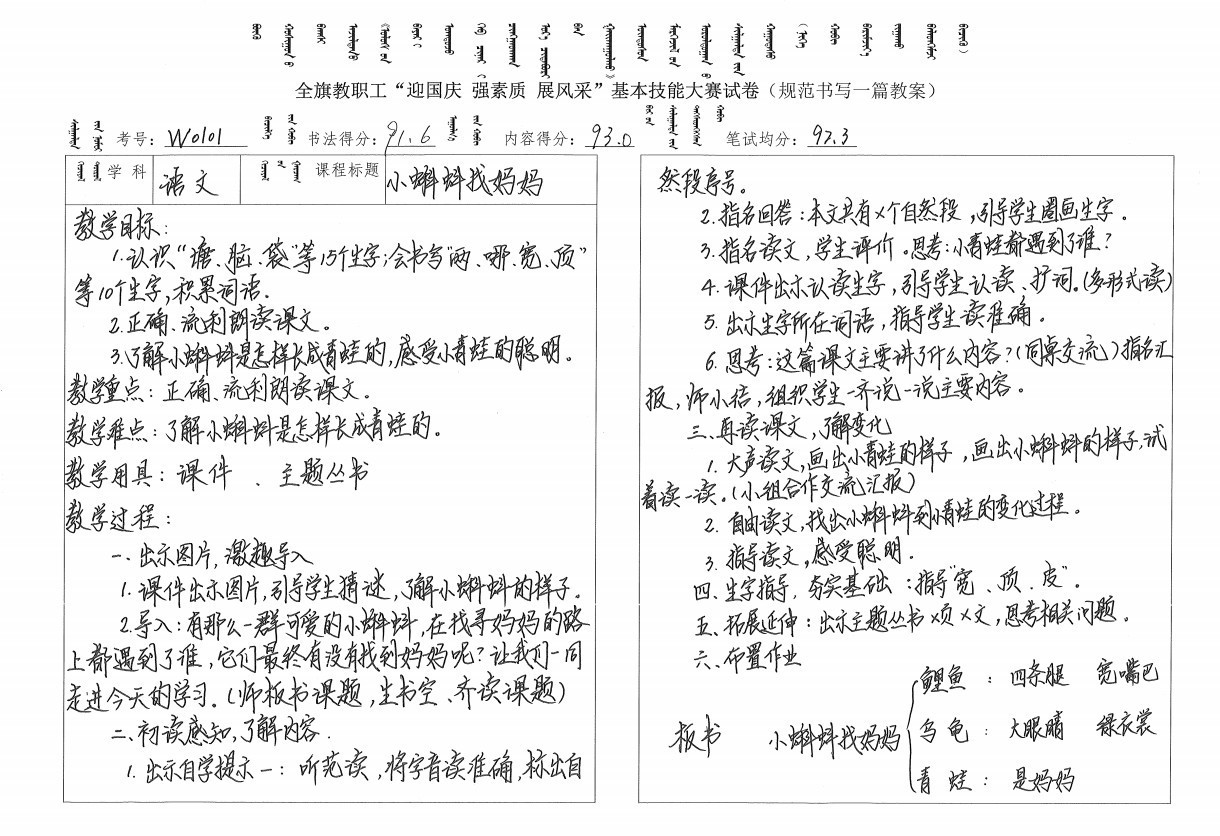 全旗教职工“迎国庆 强素质 展风采”基本技能大赛试卷（规范书写一篇教案）
考号： W0101 书法得分：91.6 内容得分：93.0 笔试均分：92.3
学科 语文 课程标题 小蝌蚪找妈妈
教学目标：
1.认识“塘、脑、袋”等15个生字；会书写“两、哪、宽、顶”
等10个生字，积累词语.
2.正确、流利朗读课文。
3.了解小蝌蚪是怎样长成青蛙的，感受小青蛙的聪明。
教学重点：正确、流利朗读课文。
教学难点：了解小蝌蚪是怎样长成青蛙的。
教学用具：课件 、主题丛书
教学过程：
一.出示图片，激趣导入
1.课件出示图片，引导学生猜谜，了解小蝌蚪的样子.
2.导入：有那么一群可爱的小蝌蚪，在找寻妈妈的路
上都遇到了谁，它们最终有没有找到妈妈呢？让我们一同
走进今天的学习.（师板书课题，生书空、齐读课题）
二、初读感知，了解内容.
1.出示自学提示一：听范读，将字音读准确，标出自
然段序号。
2.指名回答：本文共有×个自然段，引导学生圈画生字。
3.指名读文，学生评价。思考：小青蛙都遇到了谁？
4.课件出示认读生字，引导学生认读、扩词。（多形式读）
5.出示生字所在词语，指导学生读准确。
6.思考：这篇课文主要讲了什么内容？（同桌交流）指名汇
报，师小结，组织学生一齐说一说主要内容。
三、再读课文，了解变化
1.大声读文，画出小青蛙的样子，画出小蝌蚪的样子，试
着读一读。（小组合作交流汇报）
2.自由读文，找出小蝌蚪到小青蛙的变化过程。
3.指导读文，感受聪明。
四、生字指导，夯实基础：指导“宽、顶、皮”。
五、拓展延伸：出示主题丛书×页×文，思考相关问题。
六、布置作业
板书 小蝌蚪找妈妈
鲤鱼：四条腿 宽嘴巴
乌龟：大眼睛 绿衣裳
青蛙：是妈妈